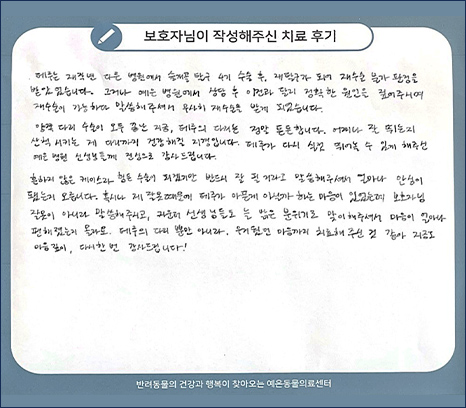 보호자님이 작성해주신 치료 후기
테주는 재작년 다른 병원에서 슬개골 탈구 4기 수술 후, 재탈구가 되어 재수술 불가 판정을
받았었습니다. 그러나 예은 병원에서 상담 후 이전과 달리 정확한 원인을 짚어주시며
재수술이 가능하다 말씀해주셔서 무사히 재수술을 받게 되었습니다.
양쪽 다리 수술이 모두 끝난 지금, 테주의 다리는 정말 튼튼합니다. 어찌나 잘 뛰는지
산책 시키는 제 다리까지 건강해질 지경입니다. 테주가 다시 신나게 뛰어놀 수 있게 해주신
예은 병원 선생님들께 진심으로 감사드립니다.
흔하지 않은 케이스라 힘든 수술이 되겠지만 반드시 잘 될 거라고 말씀해주셔서 얼마나 안심이
됐는지 모릅니다. 혹시나 제 잘못 때문에 테주가 아픈게 아닌가 하는 마음이 있었는데, 보호자님
잘못이 아니라 말씀해주시고, 간호사 선생님들도 늘 밝은 분위기로 맞이해주셔서 마음이 얼마나
편해졌는지 몰라요. 테주의 다리 뿐만 아니라, 무거웠던 마음까지 치료해 주신 것 같아 지금도
마음 깊이, 다시 한 번 감사드립니다!
반려동물의 건강과 행복이 찾아오는 예은동물의료센터